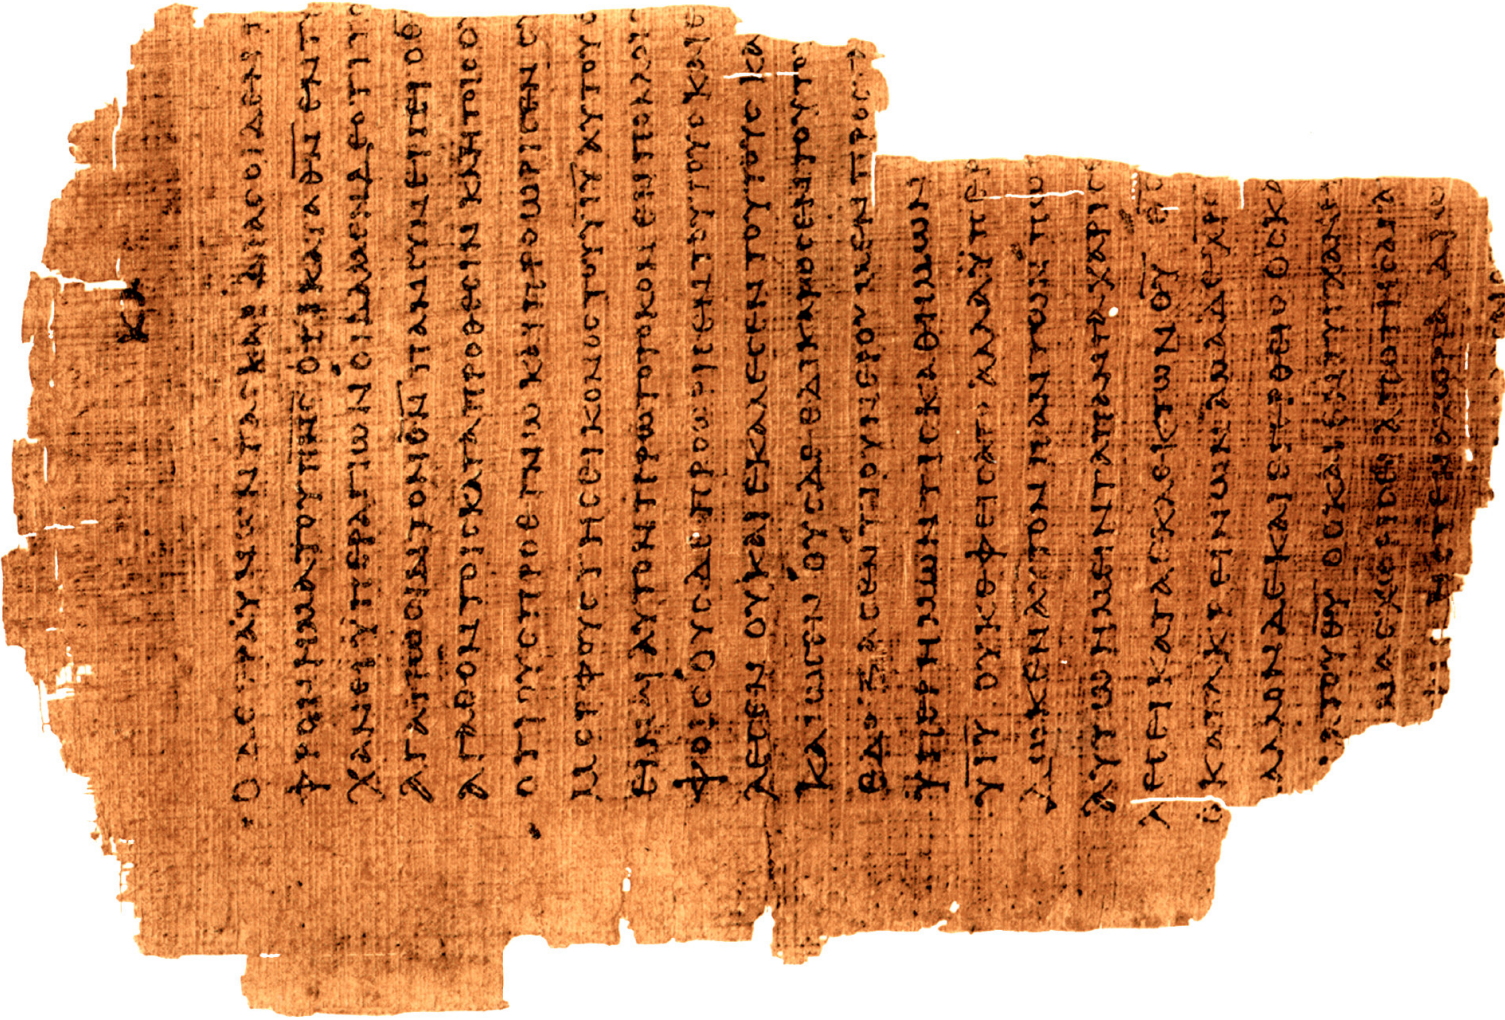 ΚΑ
ΟΔΕΕΡΑΫΝΩΝΤΑϹΚΑΡΔΙΑϹΟΙΔΕΝΤ
ΦΡΟΝΗΜΑΤΟΥΠ̅Ν̅Ϲ̅ΟΤΙΚΑΤΑΘ̅Ν̅ΕΝΤΥ
ΧΑΝΕΙΫΠΕΡΑΓΙΩΝΟΙΔΑΜΕΝΔΕΟΤΙΤΟ
ΑΓΑΠΩϹΙΝΤΟΝΘ̅Ν̅ΠΑΝϹΥΝΕΡΓΕΙΟΘ
ΑΓΑΘΟΝΤΟΙϹΚΑΤΑΠΡΟΘΕϹΙΝΚΛΗΤΟΙϹΟ
ΟΤΙΟΥϹΠΡΟΕΓΝΩΚΑΙΠΡΟΩΡΙϹΕΝϹ
ΜΟΡΦΟΥϹΤΗϹΕΙΚΟΝΟϹΤΟΥΥ̅Υ̅ΑΥΤΟΥ
ΕΙΝΑΙΑΥΤΟΝΠΡΩΤΟΤΟΚΟΝΕΝΠΟΛΛΟΙ
ΦΟΙϹΟΥϹΔΕΠΡΟΩΡΙϹΕΝΤΟΥΤΟΥϹΚΑΙΕ
ΛΕϹΕΝΟΥϹΚΑΙΕΚΑΛΕϹΕΝΤΟΥΤΟΥϹΚΑ
ΚΑΙΩϹΕΝΟΥϹΔΕΕΔΙΚΑΙΩϹΕΝΤΟΥΤΟ
ΕΔΟΞΑϹΕΝΤΙΟΥΝΕΡΟΥΜΕΝΠΡΟϹ
ΫΠΕΡΗΜΩΝΤΙϹΚΑΘΗΜΩΝ
Υ̅Ι̅Υ̅ΟΥΚΕΦΕΙϹΑΤΟΑΛΛΑΫΠΕΡ
ΔΩΚΕΝΑΥΤΟΝΠΑΝΤΩΝΠΩ
ΑΥΤΩΗΜΕΙΝΤΑΠΑΝΤΑΧΑΡΙϹ
ΛΕϹΕΙΚΑΤΑΕΚΛΕΚΤΩΝΘ̅Υ̅Θ̅
ΟΚΑΤΑΚΡΕΙΝΩΝΑΜΑΔΕΧΡ
ΑΛΛΟΝΔΕΚΑΙΕΓΕΡΘΕΙϹΟϹΚΑ
ΤΟΥΘ̅Υ̅ΟϹΚΑΙΕΝΤΥΓΧΑΝΕ
ΜΑϹΧΩΡΙϹΕΙΑΠΟΤΗϹΑΓΑ
ϹΤΕΝΟΧΩΡΙΑΔΙΩ